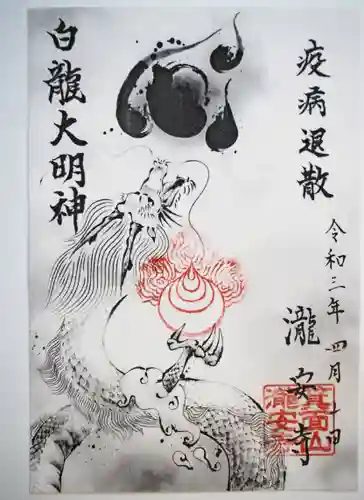 疫病退散
令和三年四月十日
瀧安寺
白龍大明神
箕面山
瀧安寺